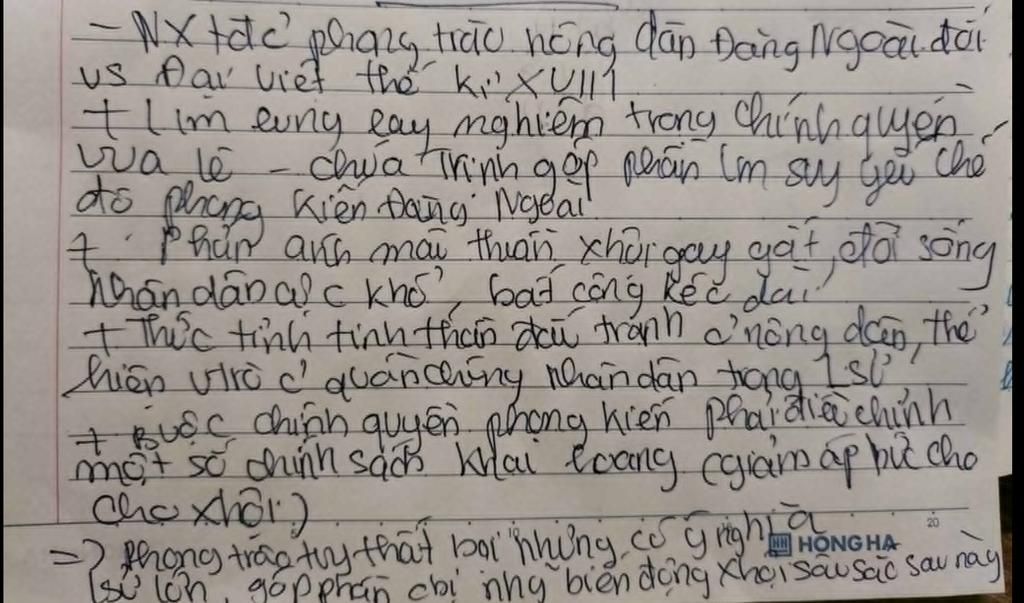 - NX tđc' phong trào nông dân Đàng Ngoài đối
vs Đại Việt thế kỉ XVIII
+ làm lung lay nghiêm trọng chính quyền
vua lê - chúa Trịnh góp phần lm suy yếu chế
độ phong kiến Đàng Ngoài
+ Phản ánh mâu thuẫn xhội gay gắt, đời sống
Nhân dân cực khổ, bất công kéo dài
+ Thức tỉnh tinh thần đấu tranh c' nông dân, thể
hiện vtrò c' quần chúng nhân dân trong lsử
+ Buộc chính quyền phong kiến phải điều chỉnh
một số chính sách khai hoang (giảm áp bức cho
cho xhội)
=> Phong trào tuy thất bại nhưng có ý nghĩa
lsử lớn, góp phần cbị nhg biến động xhội sâu sắc sau này
20
HH HONG HA